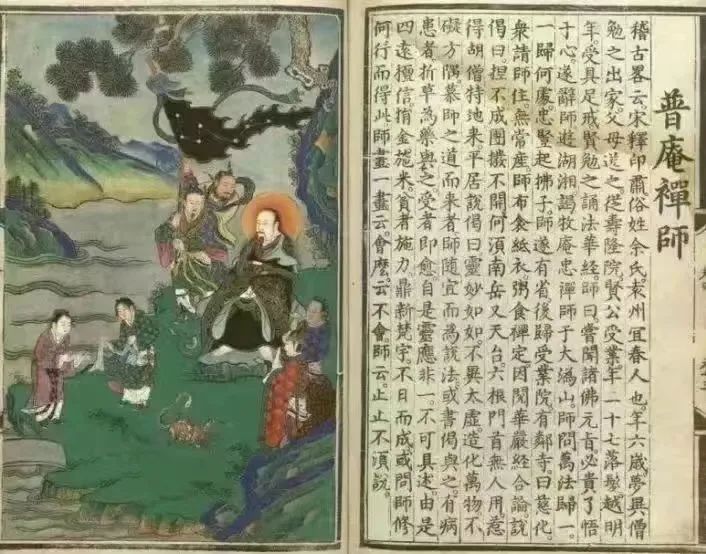 普庵禪師
稽古畧云。宋釋印肅。俗姓余氏。袁州宜春人也。年六歲。夢異僧
勉之出家。父母送之。從壽隆院賢公受業。年一十七落髮。越明
年。受具足戒。賢勉之誦法華經。師曰。嘗聞諸佛元旨。必貴了悟
于心。遂辭師遊湖湘。謁牧庵忠禪師于大溈山。師問萬法歸一。
一歸何處。忠豎起拂子。師遂有省。後歸受業院。有鄰寺。曰慈化。
衆請師住。無常産。師布衾紙衣。粥食禪定。因閱華嚴經合論。說
偈曰。捏不成團撥不開。何須南岳又天台。六根門首無人用。惹
得胡僧特地来。平居說偈曰。靈妙如如。不異太虛。造化萬物。不
礙方隅。慕師之道而来者。師隨宜而為說法。或書偈與之。有病
患者。折草為藥與之。受者即愈。自是靈應非一。不可具述。由是
四遠檀信。捐金施米。貧者施力。鼎新梵宇。不日而成。或問師修
何行而得此。師畫一畫云。會麽。云。不會。師云。止止不須說。